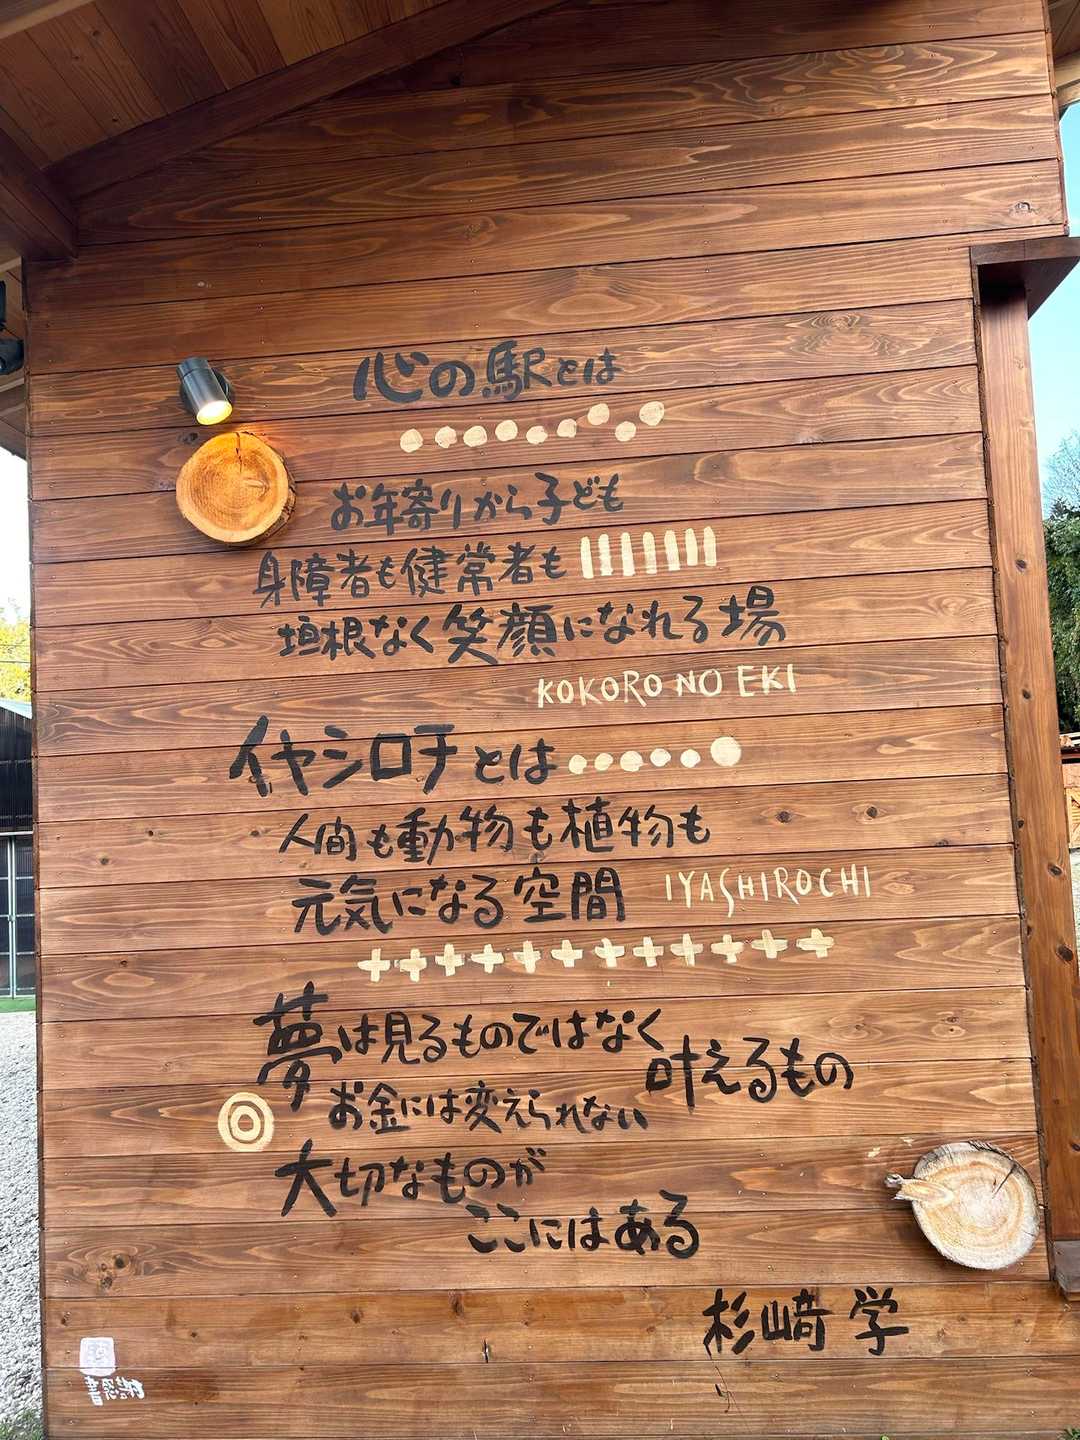 心の駅とは
お年寄りから子ども
身障者も健常者も
垣根なく笑顔になれる場
KOKORO NO EKI
イヤシロチとは
人間も動物も植物も
元気になる空間
IYASHIROCHI
夢は見るものではなく
叶えるもの
お金には変えられない
大切なものが
ここにはある
杉﨑 学